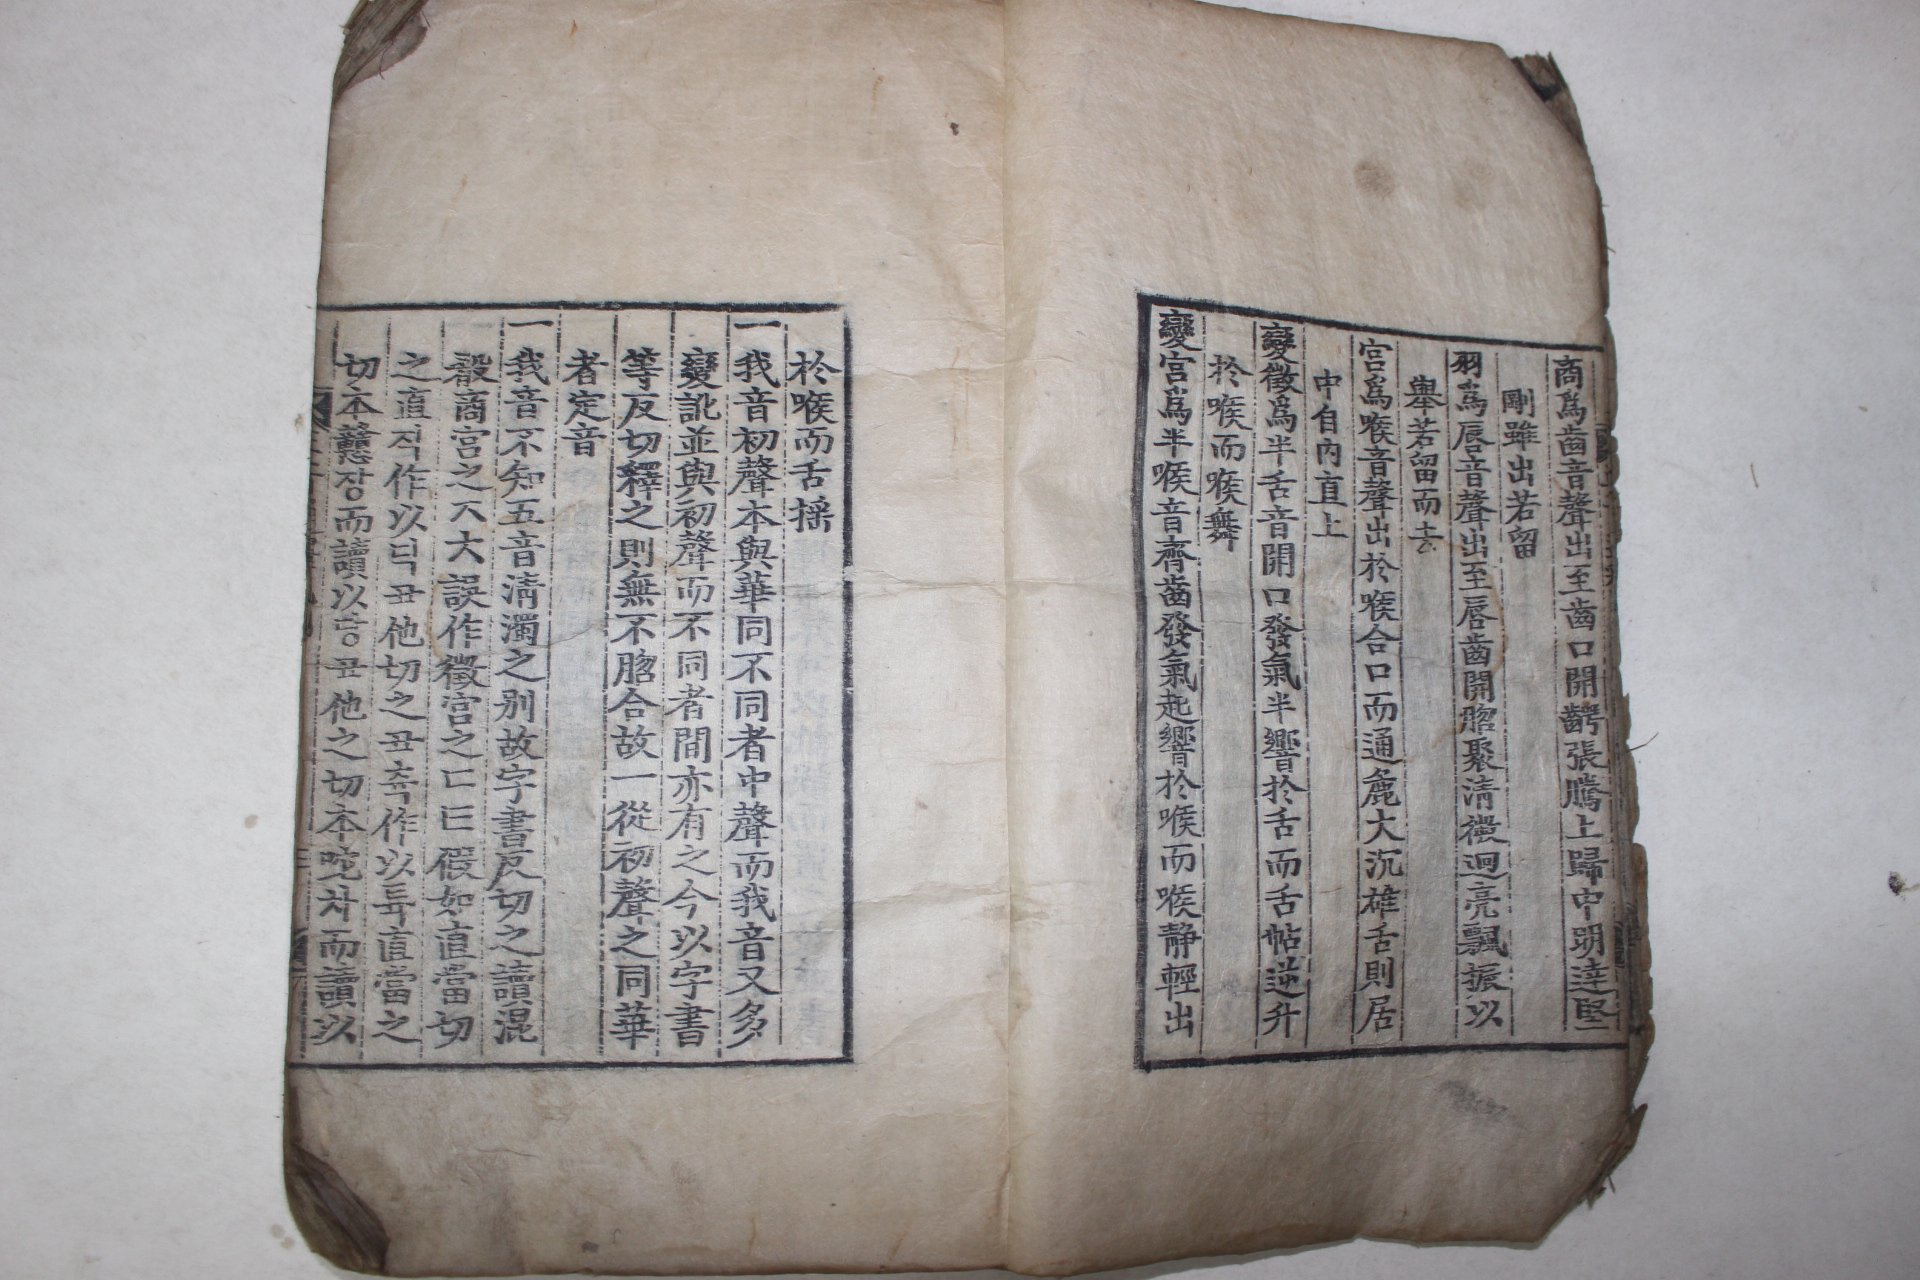 商爲齒音聲出至齒口開齶張騰上歸中明達堅
剛雖出若留
羽爲唇音聲出至唇齒開脗聚清微迴亮飄振以
舉若留而去
宮爲喉音聲出於喉合口而通麁大沉雄舌則居
中自內直上
變徵爲半舌音開口發氣半響於舌而舌帖逆升
於喉而喉舞
變宮爲半喉音齊齒發氣起響於喉而喉静輕出
於喉而舌搖
一我音初聲本與華同不同者中聲而我音又多
變訛並與初聲而不同者間亦有之今以字書
等反切釋之則無不脗合故一從初聲之同華
者定音
一我音不知五音清濁之别故字書反切之讀混
骰商宮之ㅈ大誤作徵宮之ㄷㅌ假如直當切
之直직作以딕丑他切之丑츅作以튝直當之
切本戇장而讀以당丑他之切本咤차而讀以